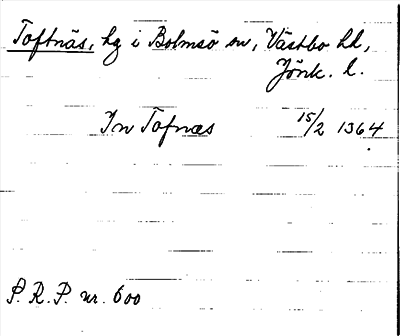 Toftnäs, hg i Bolmsö sn, Västbo hd,
Jönk. l.
In Tofnæs 15/2 1364
P. R. P. nr. 600